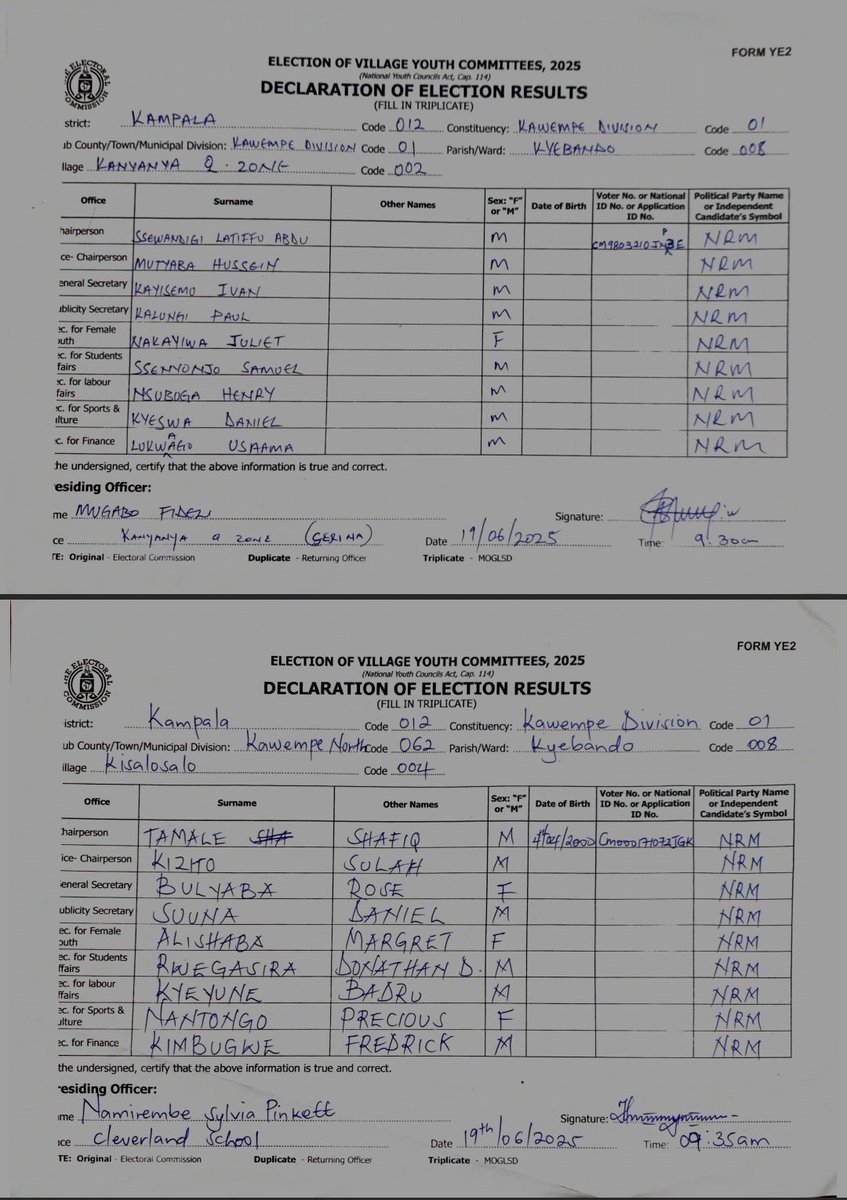 FORM YE2
THE ELECTORAL COMMISSION
ELECTION OF VILLAGE YOUTH COMMITTEES, 2025
(National Youth Councils Act, Cap. 114)
DECLARATION OF ELECTION RESULTS
(FILL IN TRIPLICATE)
strict: KAMPALA Code 012 Constituency: KAWEMPE DIVISION Code 01
ub County/Town/Municipal Division: KAWEMPE DIVISION Code 01 Parish/Ward: KYEBANDO Code 008
llage KANYANYA Q. ZONE Code 002
Office Surname Other Names Sex: "F" or "M" Date of Birth Voter No. or National ID No. or Application ID No. Political Party Name or Independent Candidate's Symbol
hairperson SSEWANDIGI LATIFFU ABDU M NRM
ce- Chairperson MUTYABA HUSSEIN M NRM
eneral Secretary KAYISEMO IVAN M NRM
ublicity Secretary KALUNGI PAUL M NRM
ec. for Female outh NAKAYIWA JULIET F NRM
ec. for Students ffairs SSENYONJO SAMUEL M NRM
ec. for labour ffairs NSUBUGA HENRY M NRM
ec. for Sports & ulture KYESWA DANIEL M NRM
ec. for Finance LUKWAGO USAAMA M NRM
he undersigned, certify that the above information is true and correct.
esiding Officer:
me MUGABO Signature:
ce KANYANYA Q ZONE (GERINA) Date 19/06/2025 Time: 9:30am
TE: Original - Electoral Commission Duplicate - Returning Officer Triplicate - MOGLSD
FORM YE2
THE ELECTORAL COMMISSION
ELECTION OF VILLAGE YOUTH COMMITTEES, 2025
(National Youth Councils Act, Cap. 114)
DECLARATION OF ELECTION RESULTS
(FILL IN TRIPLICATE)
istrict: Kampala Code 012 Constituency: Kawempe Division Code 01
ub County/Town/Municipal Division: Kawempe North Code 062 Parish/Ward: Kyebando Code 008
illage Kisalosalo Code 004
Office Surname Other Names Sex: "F" or "M" Date of Birth Voter No. or National ID No. or Application ID No. Political Party Name or Independent Candidate's Symbol
hairperson TAMALE SHAFIQ M NRM
ice- Chairperson KIZITO SULAH M NRM
eneral Secretary BULYABA ROSE F NRM
ublicity Secretary SUUNA DANIEL M NRM
ec. for Female outh ALISHABA MARGRET F NRM
ec. for Students ffairs RWEGASIRA DONATHAN D. M NRM
ec. for labour ffairs KYEYUNE BADRU M NRM
ec. for Sports & ulture NANTONGO PRECIOUS F NRM
ec. for Finance KIMBUGWE FREDRICK M NRM
the undersigned, certify that the above information is true and correct.
esiding Officer:
me Namirembe Sylvia Pinkett Signature:
ace Cleverland School Date 19th/06/2025 Time: 09:35am
TE: Original - Electoral Commission Duplicate - Returning Officer Triplicate - MOGLSD